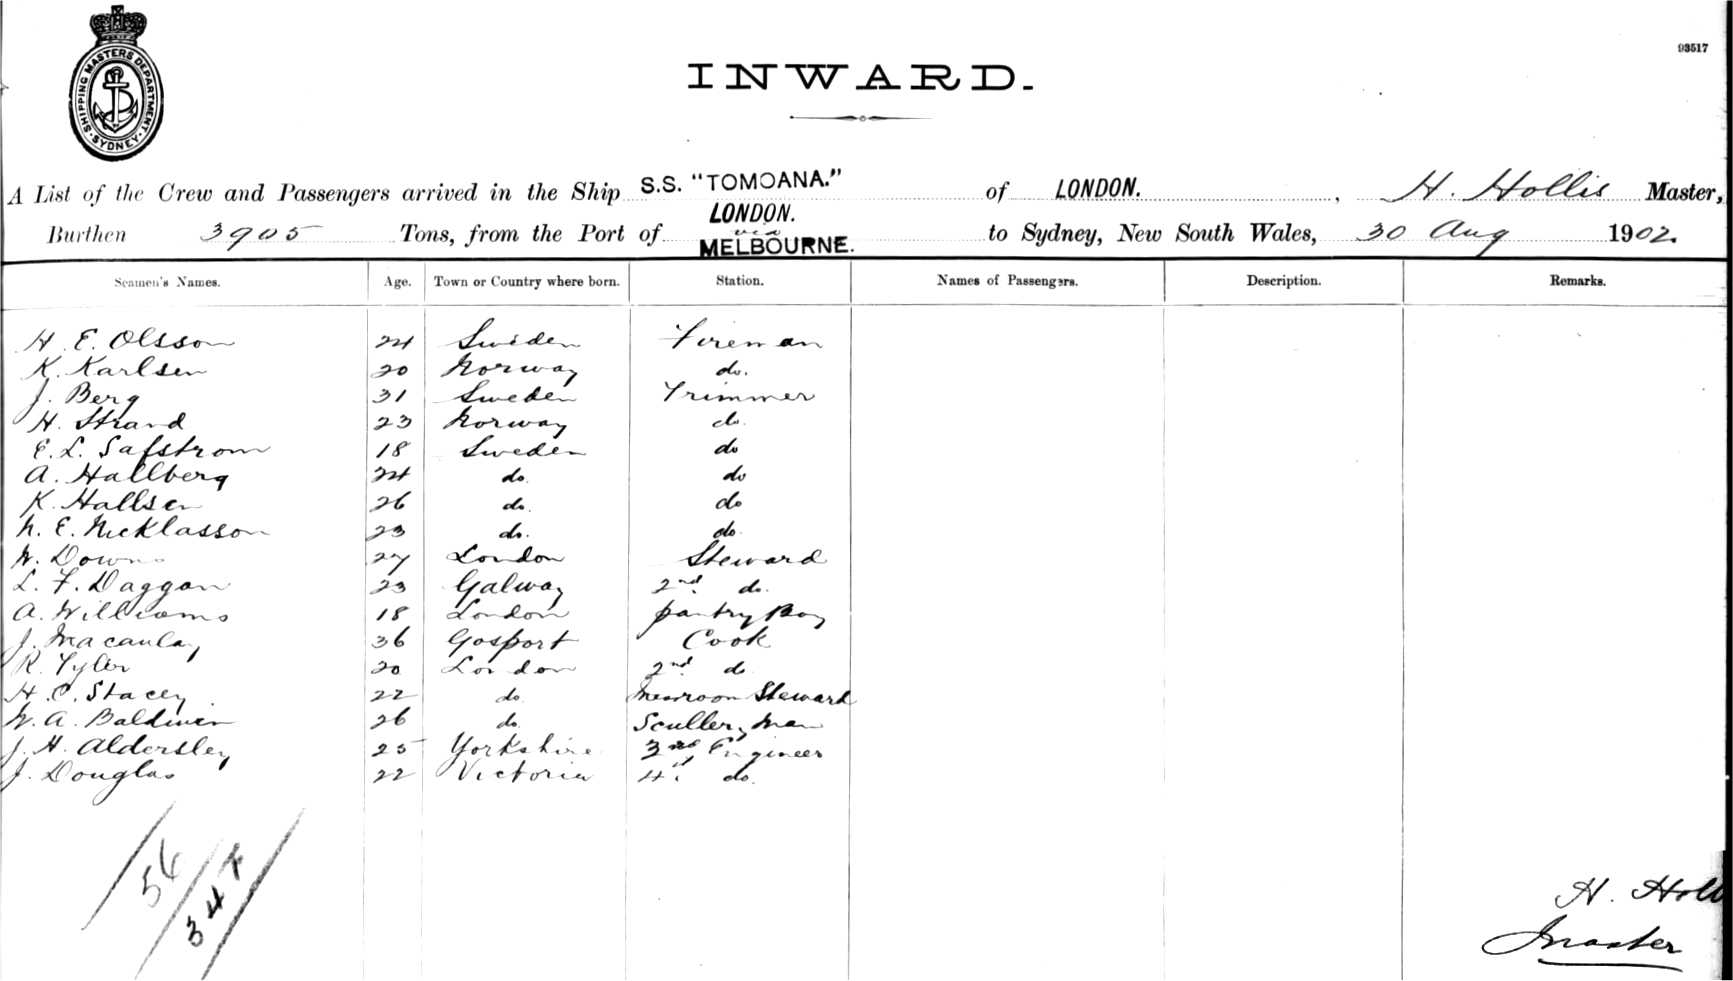 SHIPPING MASTERS DEPARTMENT · SYDNEY ·
93517
INWARD.
A List of the Crew and Passengers arrived in the Ship S.S. "TOMOANA." of LONDON. , H. Hollis Master,
Burthen 3905 Tons, from the Port of LONDON. via MELBOURNE. to Sydney, New South Wales, 30 Aug 1902.
Seamen's Names. Age. Town or Country where born. Station. Names of Passengers. Description. Remarks.
H. E. Olsson 24 Sweden Fireman
K. Karlsen 20 Norway do.
J. Berg 31 Sweden Trimmer
H. Strand 23 Norway do.
E. L. Safstrom 18 Sweden do
A. Hallberg 24 do. do
K. Hallsen 26 do. do
N. E. Nicklasson 23 do. do.
W. Down 27 London Steward
L. F. Daggan 23 Galway 2nd. do.
A. Williams 18 London pantry Boy
J. Macaulay 36 Gosport Cook
R. Tyler 20 London 2nd do
H. C. Stacey 22 do Messroom Steward
W. A. Baldwin 26 do. Scullery Man
J. H. Aldersley 25 Yorkshire 3rd Engineer
J. Douglas 22 Victoria 4. do.
56
34
H. Holl
Master